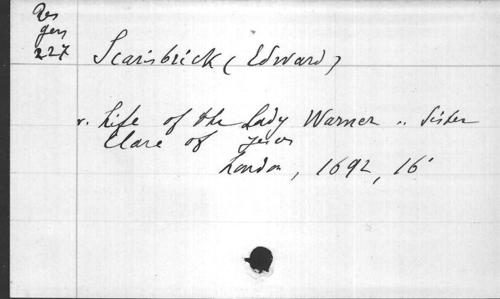 Res
gen
227
Scarisbrick (Edward)
v. Life of the Lady Warner .. Sister
Clare of Jesus
London, 1692, 16°